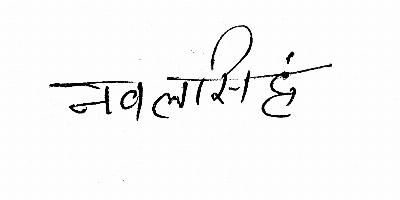 नवलसिहं